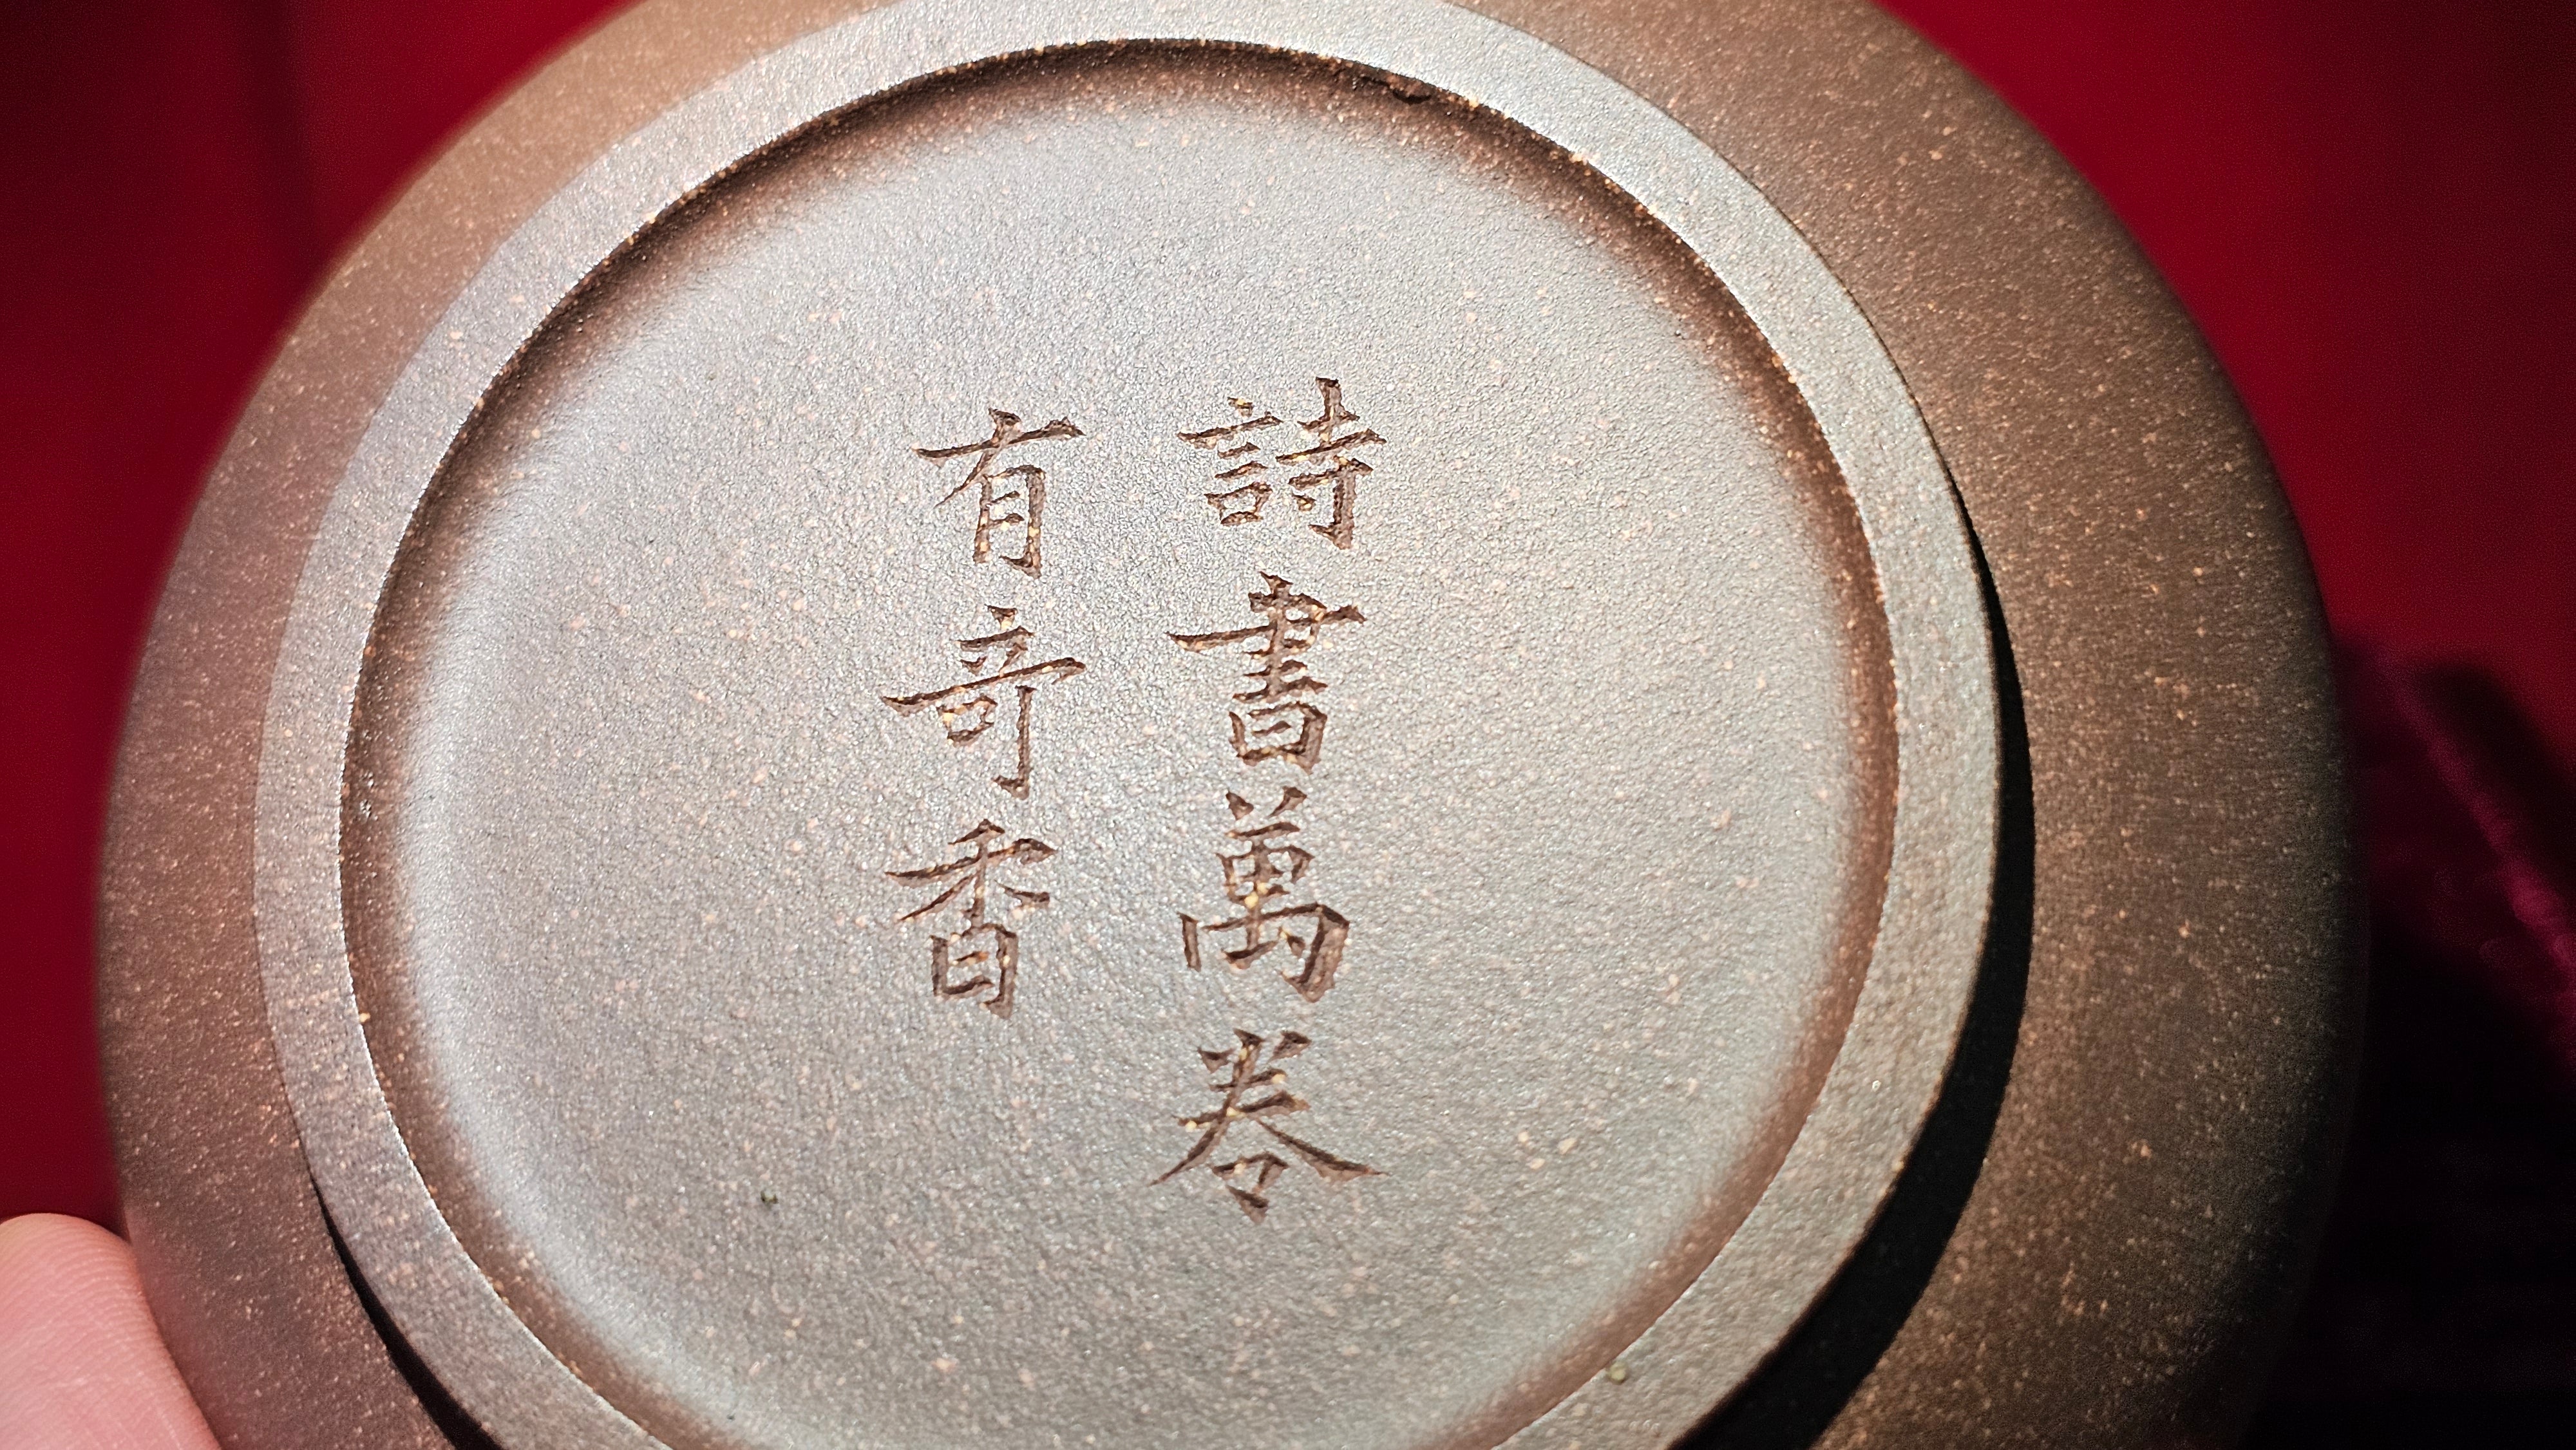 詩書萬卷
有奇香